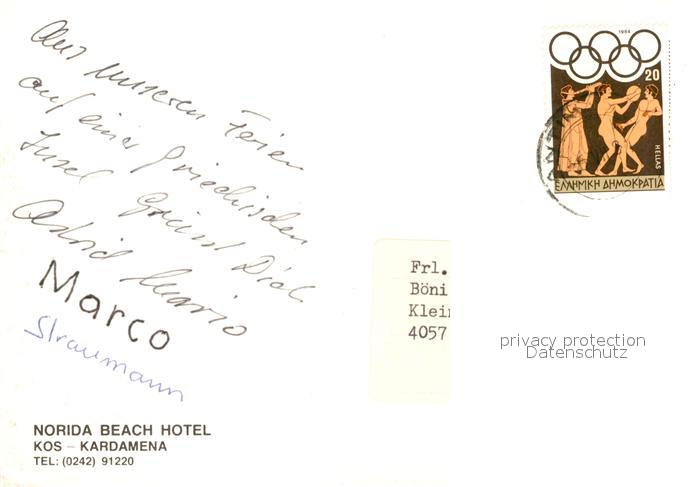 Aus unseren Ferien
auf einer griechischen
Insel grüsst Dich
Astrid Mario
Marco
Straumann
NORIDA BEACH HOTEL
KOS – KARDAMENA
TEL: (0242) 91220
1984
20
HELLAS
ΕΛΛΗΝΙΚΗ ΔΗΜΟΚΡΑΤΙΑ
Frl.
Böni
Klei
4057
privacy protection
Datenschutz